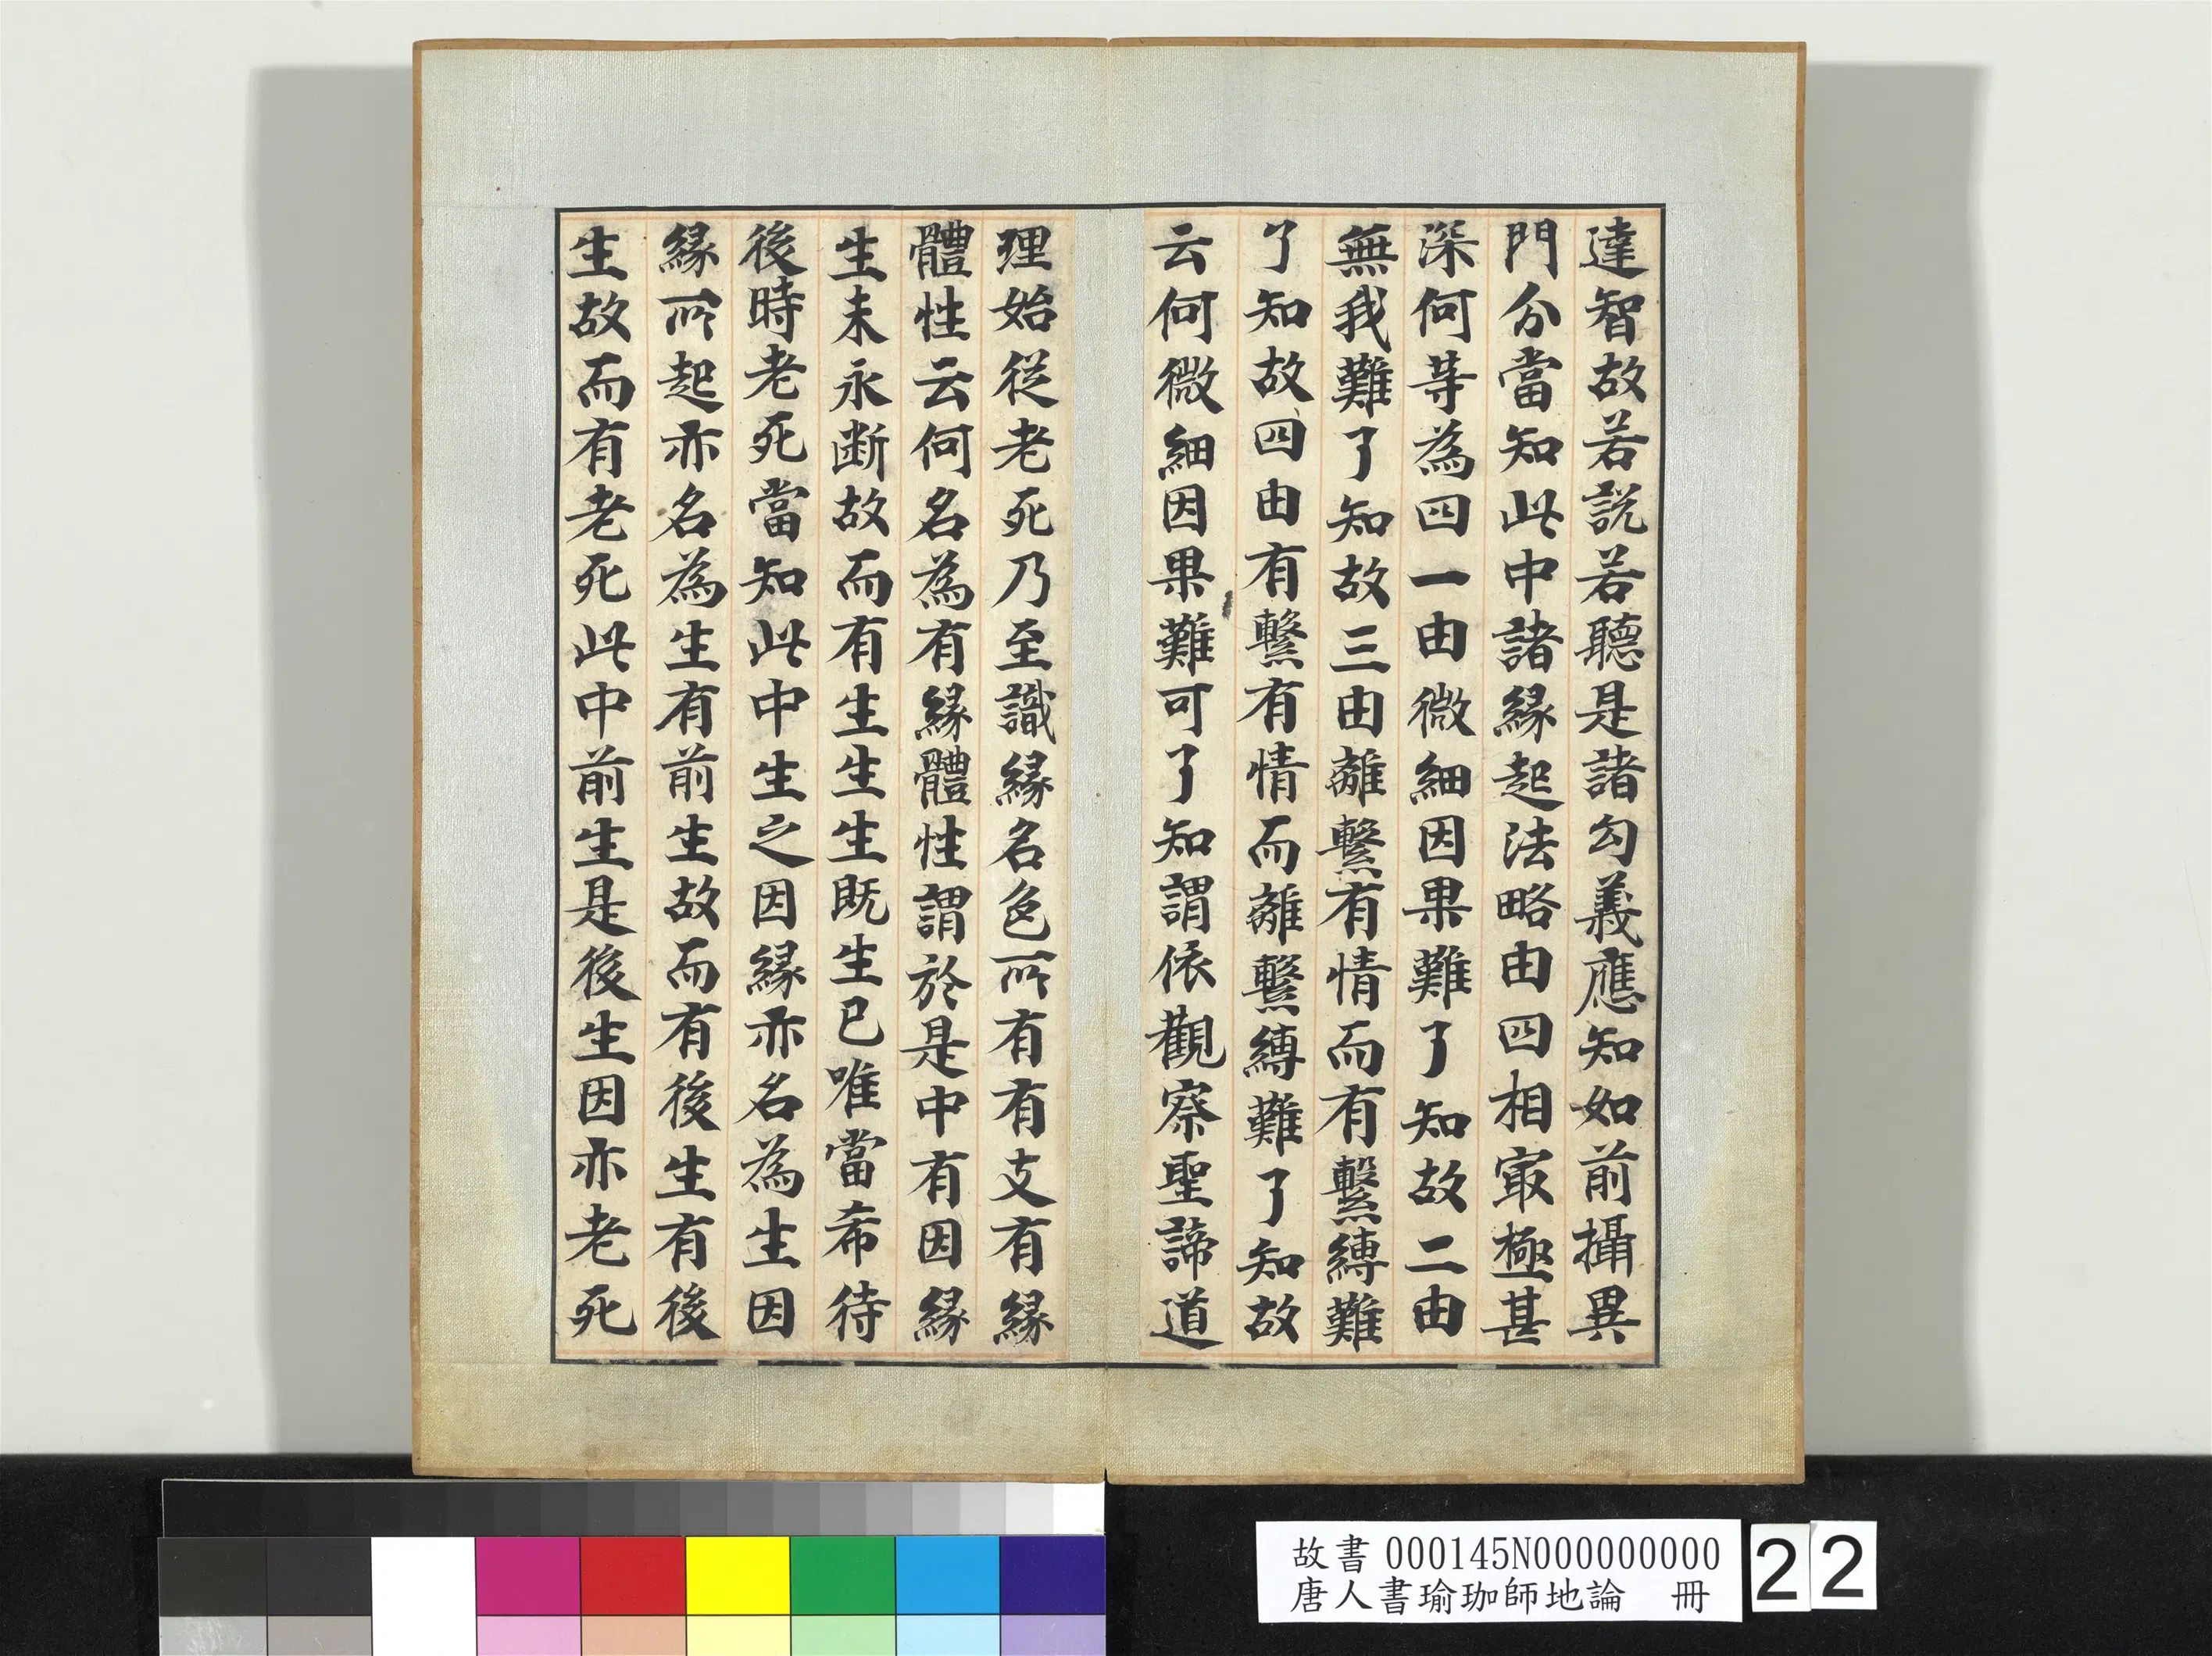 達智故若說若聽是諸勾義應知如前攝異
門分當知此中諸緣起法略由四相寂極甚
深何等為四一由微細因果難了知故二由
無我難了知故三由離繫有情而有繫縛難
了知故四由有繫有情而離繫縛難了知故
云何微細因果難可了知謂依觀察聖諦道
理始從老死乃至識緣名色所有有支有緣
體性云何名為有緣體性謂於是中有因緣
生未永斷故而有生生生既生已唯當希待
後時老死當知此中生之因緣亦名為生因
緣所起亦名為生有前生故而有後生有後
生故而有老死此中前生是後生因亦老死
故書 000145N000000000
唐人書瑜珈師地論 冊
22